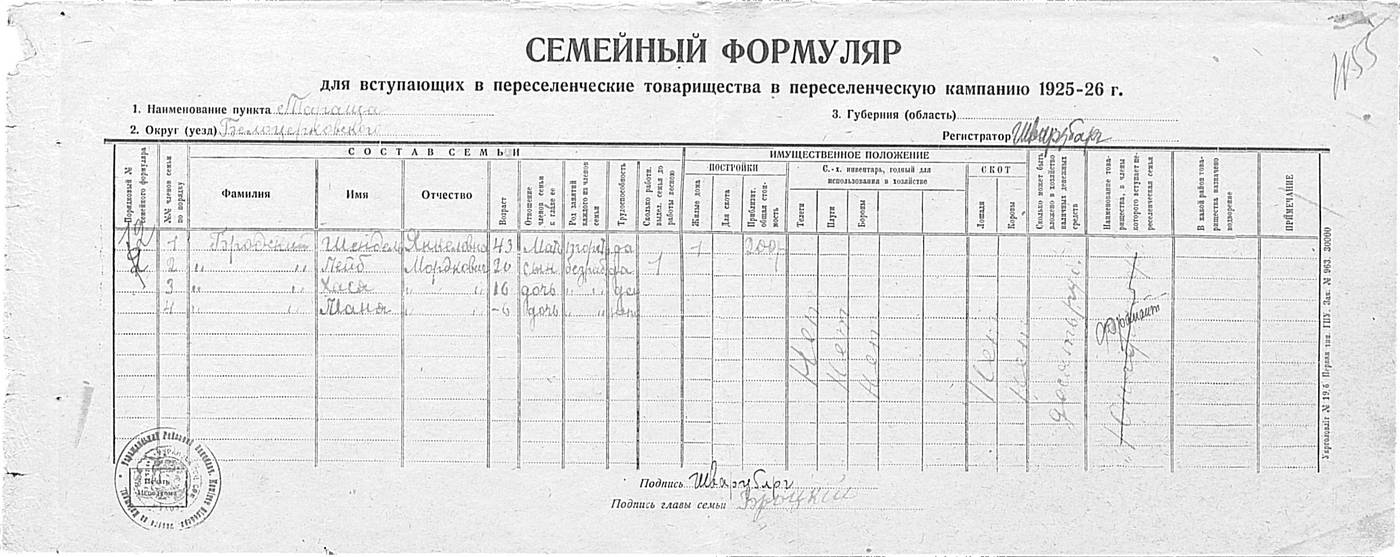 СЕМЕЙНЫЙ ФОРМУЛЯР
для вступающих в переселенческие товарищества в переселенческую кампанию 1925-26 г.
1. Наименование пункта
3. Губерния (область)
2. Округ (уезд) Белоцерковского
Регистратор Шварцбарг
СОСТАВ СЕМЬИ
ИМУЩЕСТВЕННОЕ ПОЛОЖЕНИЕ
ПОСТРОЙКИ
С.-х. инвентарь, годный для использования в хозяйстве
СКОТ
Порядковый № семейного формуляра
№№ членов семьи по порядку
Фамилия
Имя
Отчество
Возраст
Отношение членов семьи к главе ее
Род занятий каждого из членов семьи
Трудоспособность
Сколько работн. выдел. семья до работы весною
Жилые дома
Для скота
Приблизит. общая стоимость
Телеги
Плуги
Бороны
Лошади
Коровы
Сколько может быть вложено в хозяйство наличных денежных средств
Наименование товарищества, в члены которого вступает переселенческая семья
В какой район товарищества назначено водворение
ПРИМЕЧАНИЕ
1 Бродский Шендель 43 да 1 200р
2 " " Лейб Мордкович 20 сын да 1
3 " " Хася " " 16 дочь " "
4 " " " " дочь " "
Нет
Нет
Нет
Нет
Нет
Укрголовліт № 19.6 Первая тип. ГПУ. Зак. № 963. 30000
Подпись Шварцбарг
Подпись главы семьи Броцкій